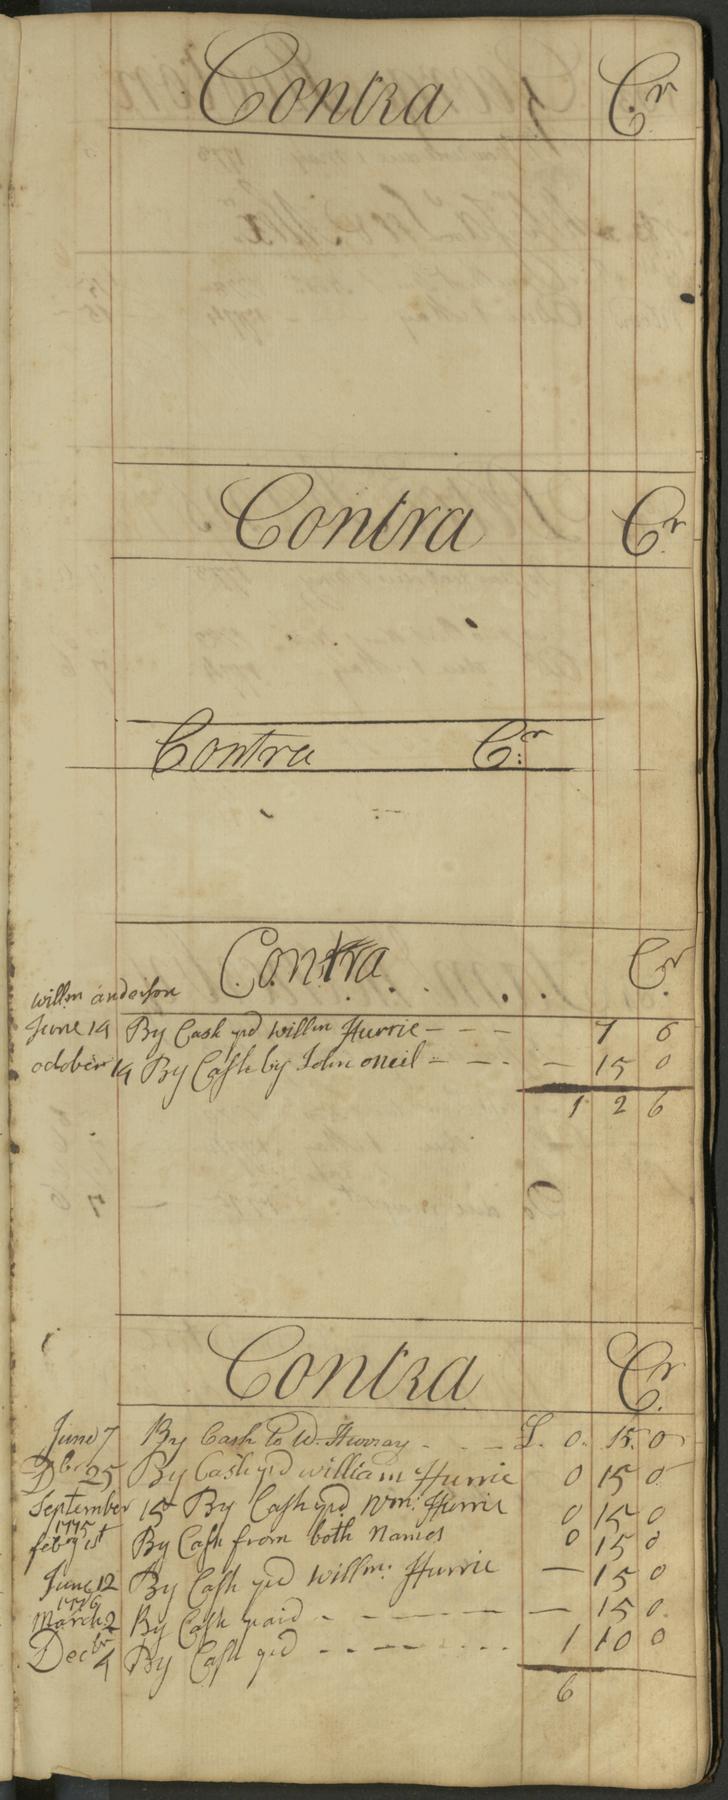 Contra Cr
Contra Cr
Contra Cr
Contra Cr
willm anderson
June 14 By Cash pd willm Hurrie - - - 7 6
october 14 By Cash by John oneil - - - 15 0
1 2 6
Contra Cr
June 7 By Cash to W. Hurray - - - £. 0. 15. 0
Dbr 25 By Cash pd william Hurrie 0 15 0
September 15 By Cash pd Wm: Hurrie 0 15 0
1775
feby 1st By Cash from both Names 0 15 0
June 12 By Cash pd Willm: Hurrie — 15 0
1776
March 2 By Cash paid - - - - — 15 0
Decbr 4 By Cash pd - - - - - 1 10 0
6